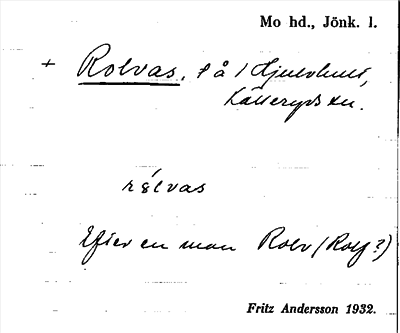 Mo hd., Jönk. l.
+ Rolvas, f å / Hjulvhult,
Källeryds sn.
rélvas
Efter en man Rolv (Rolf?)
Fritz Andersson 1932.